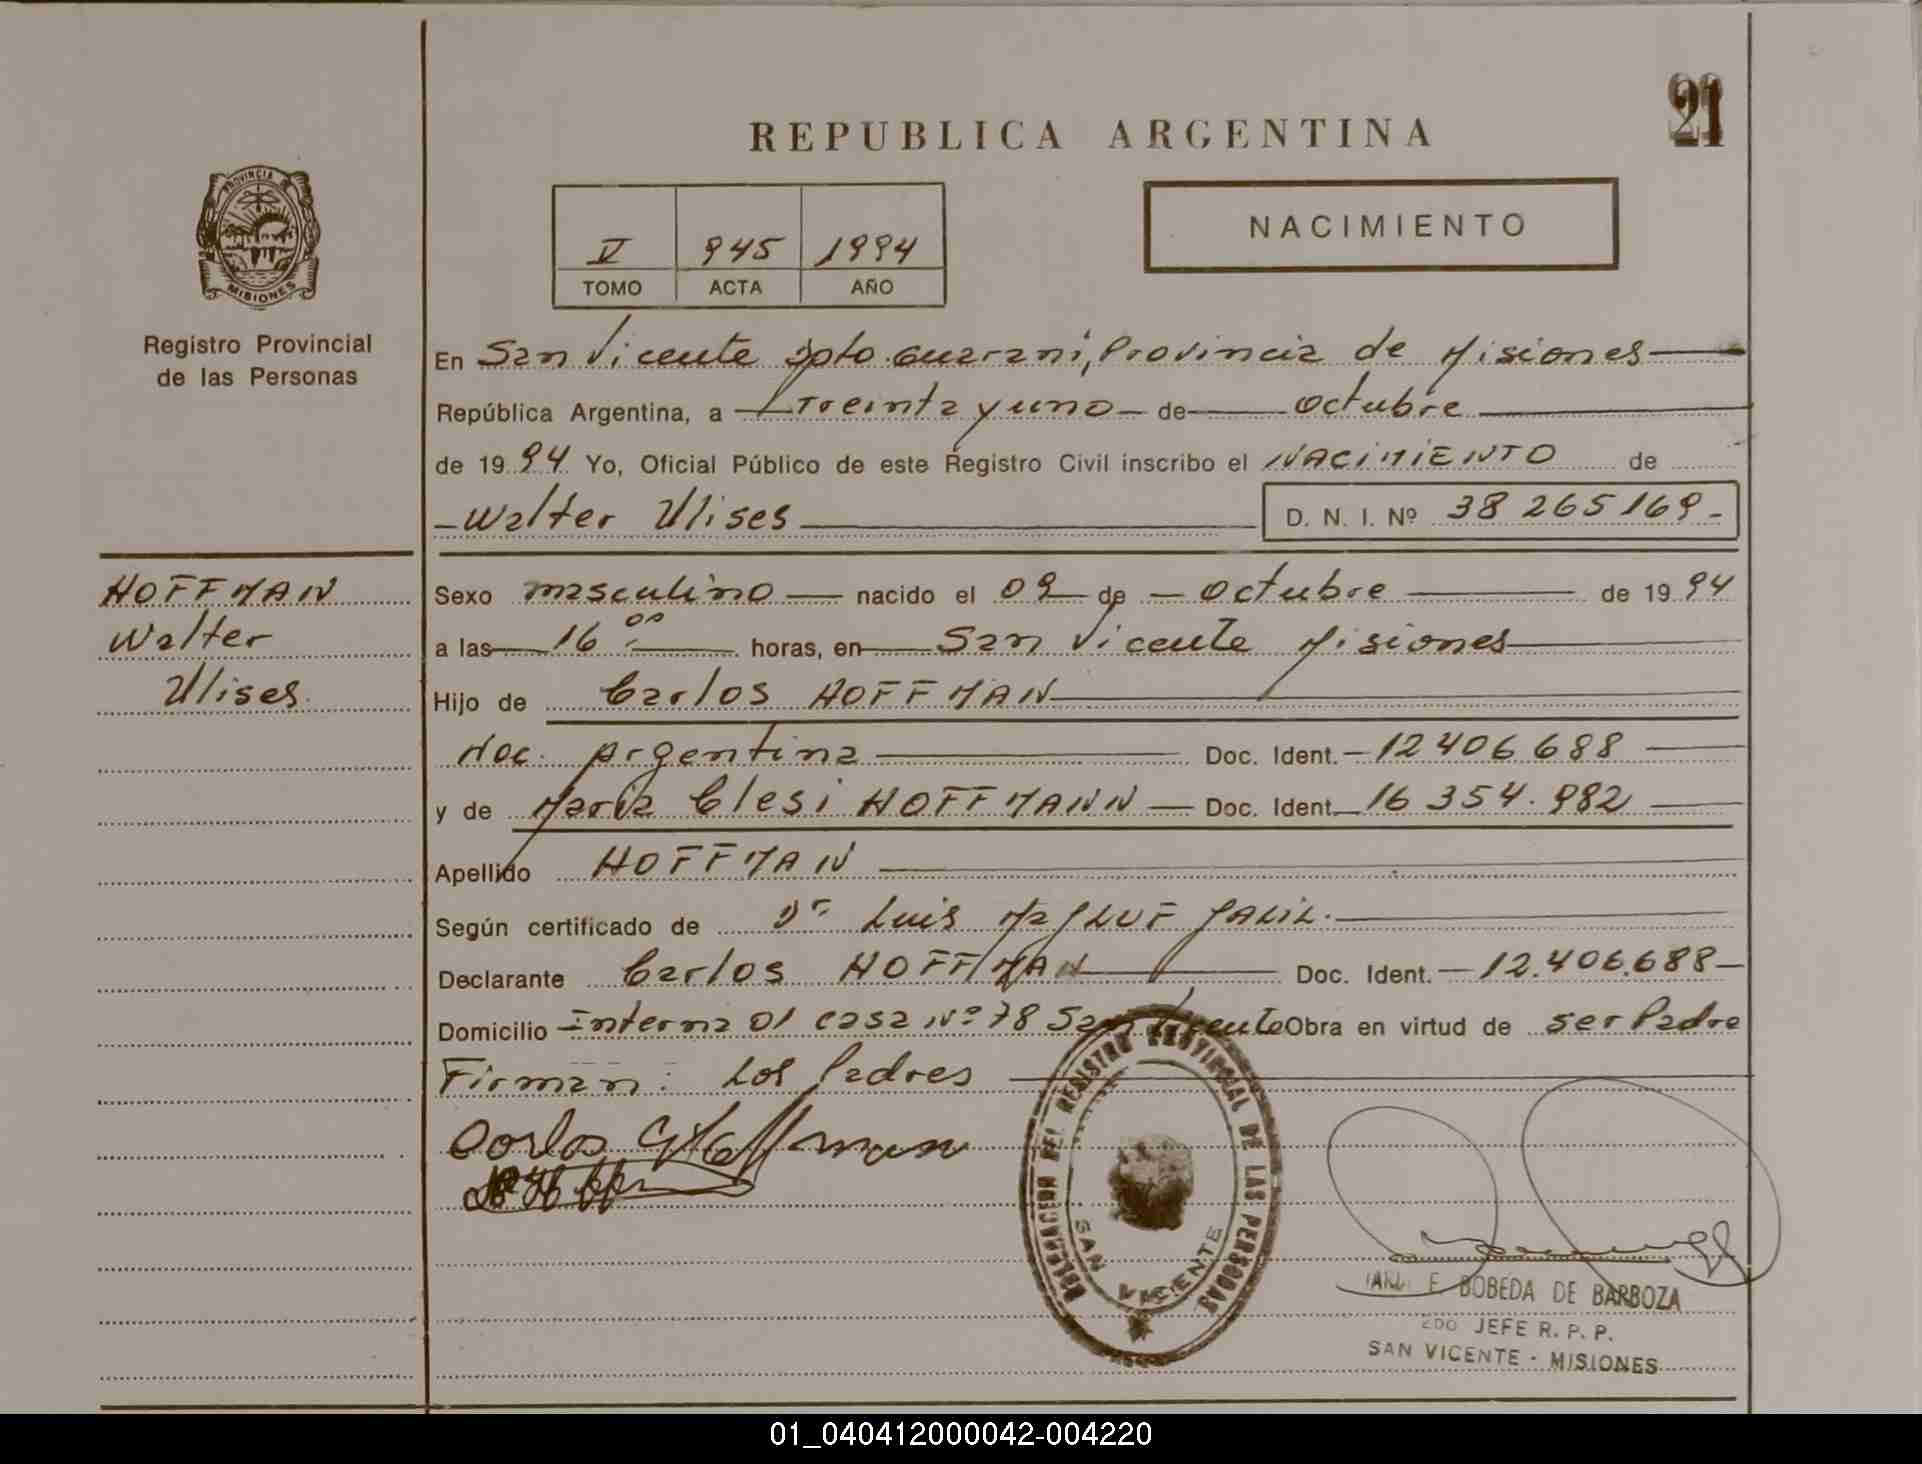 21
REPUBLICA ARGENTINA
PROVINCIA
MISIONES
Registro Provincial
de las Personas
V 945 1994
TOMO ACTA AÑO
NACIMIENTO
En San Vicente Dpto. Guarani, Provincia de Misiones
República Argentina, a Treinta y uno de octubre
de 1994 Yo, Oficial Público de este Registro Civil inscribo el NACIMIENTO de
Walter Ulises D. N. I. Nº 38 265 169-
HOFFMAN
Walter
Ulises.
Sexo masculino nacido el 09 de octubre de 1994
a las 16 00 horas, en San Vicente Misiones
Hijo de Carlos HOFFMAN
Nac. Argentina Doc. Ident. 12 406 688
y de Maria Clesi HOFFMANN Doc. Ident. 16 354.982
Apellido HOFFMAN
Según certificado de Dr Luis JALIL.
Declarante Carlos HOFFMAN Doc. Ident. 12.406.688
Domicilio Interna 01 casa Nº 78 San Vicente Obra en virtud de ser Padre
Firman: Los Padres
Carlos Hoffman
DELEGACION DEL REGISTRO PROVINCIAL DE LAS PERSONAS
SAN VICENTE
E. BOBEDA DE BARBOZA
2DO JEFE R. P. P.
SAN VICENTE - MISIONES
01_040412000042-004220